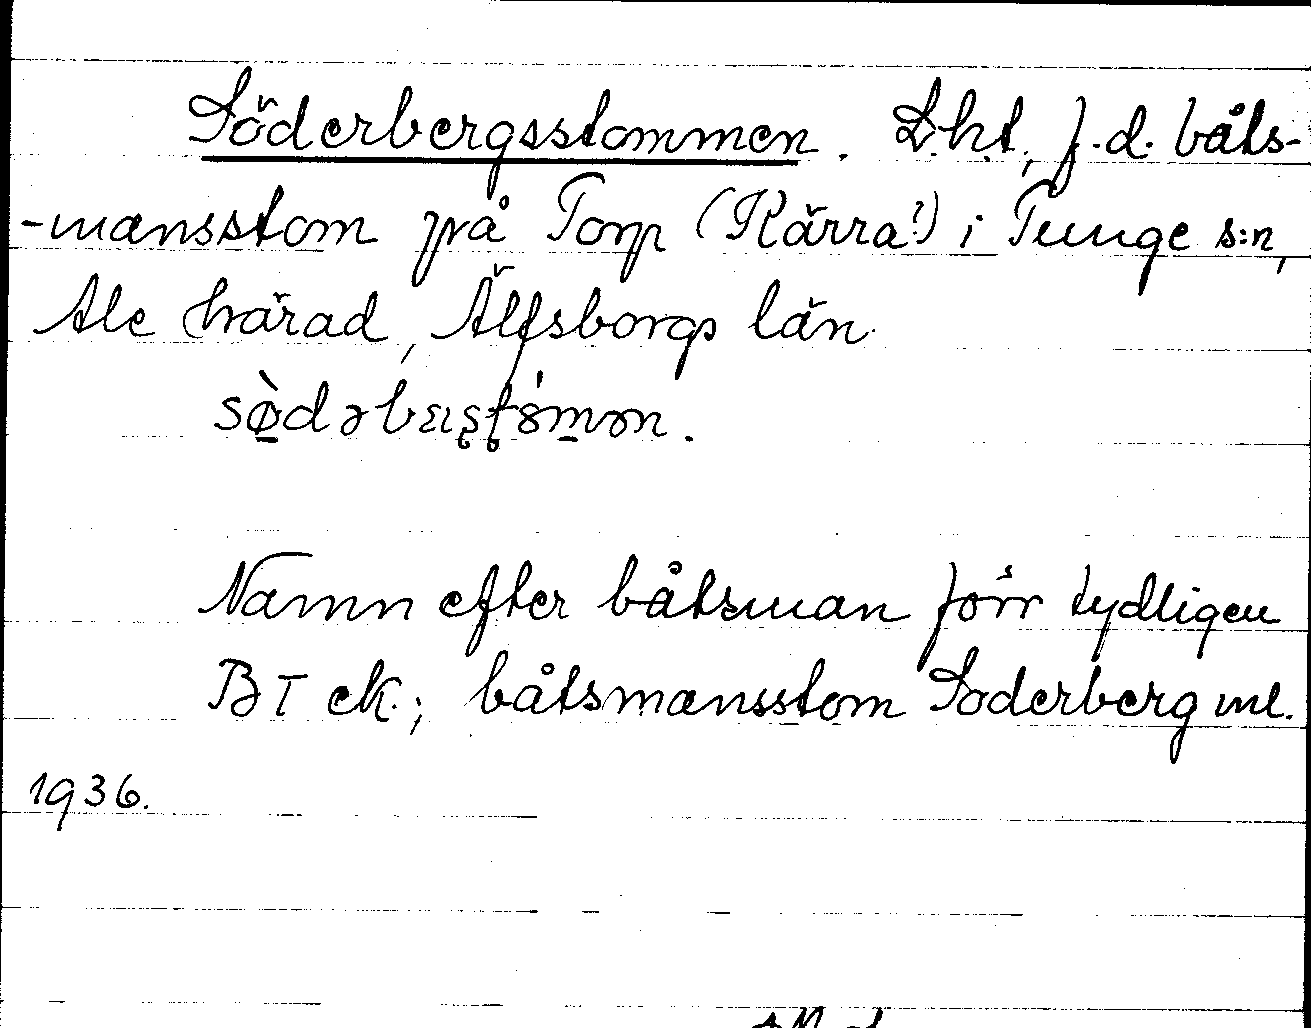 Söderbergsstommen. L.h.t., f.d. båts-
-mansstom på Torp (Kärra?) i Tunge s:n,
Ale härad, Älfsborgs län.
Namn efter båtsman förr tydligen
BT ek.; båtsmansstom Söderberg ml.
1936.